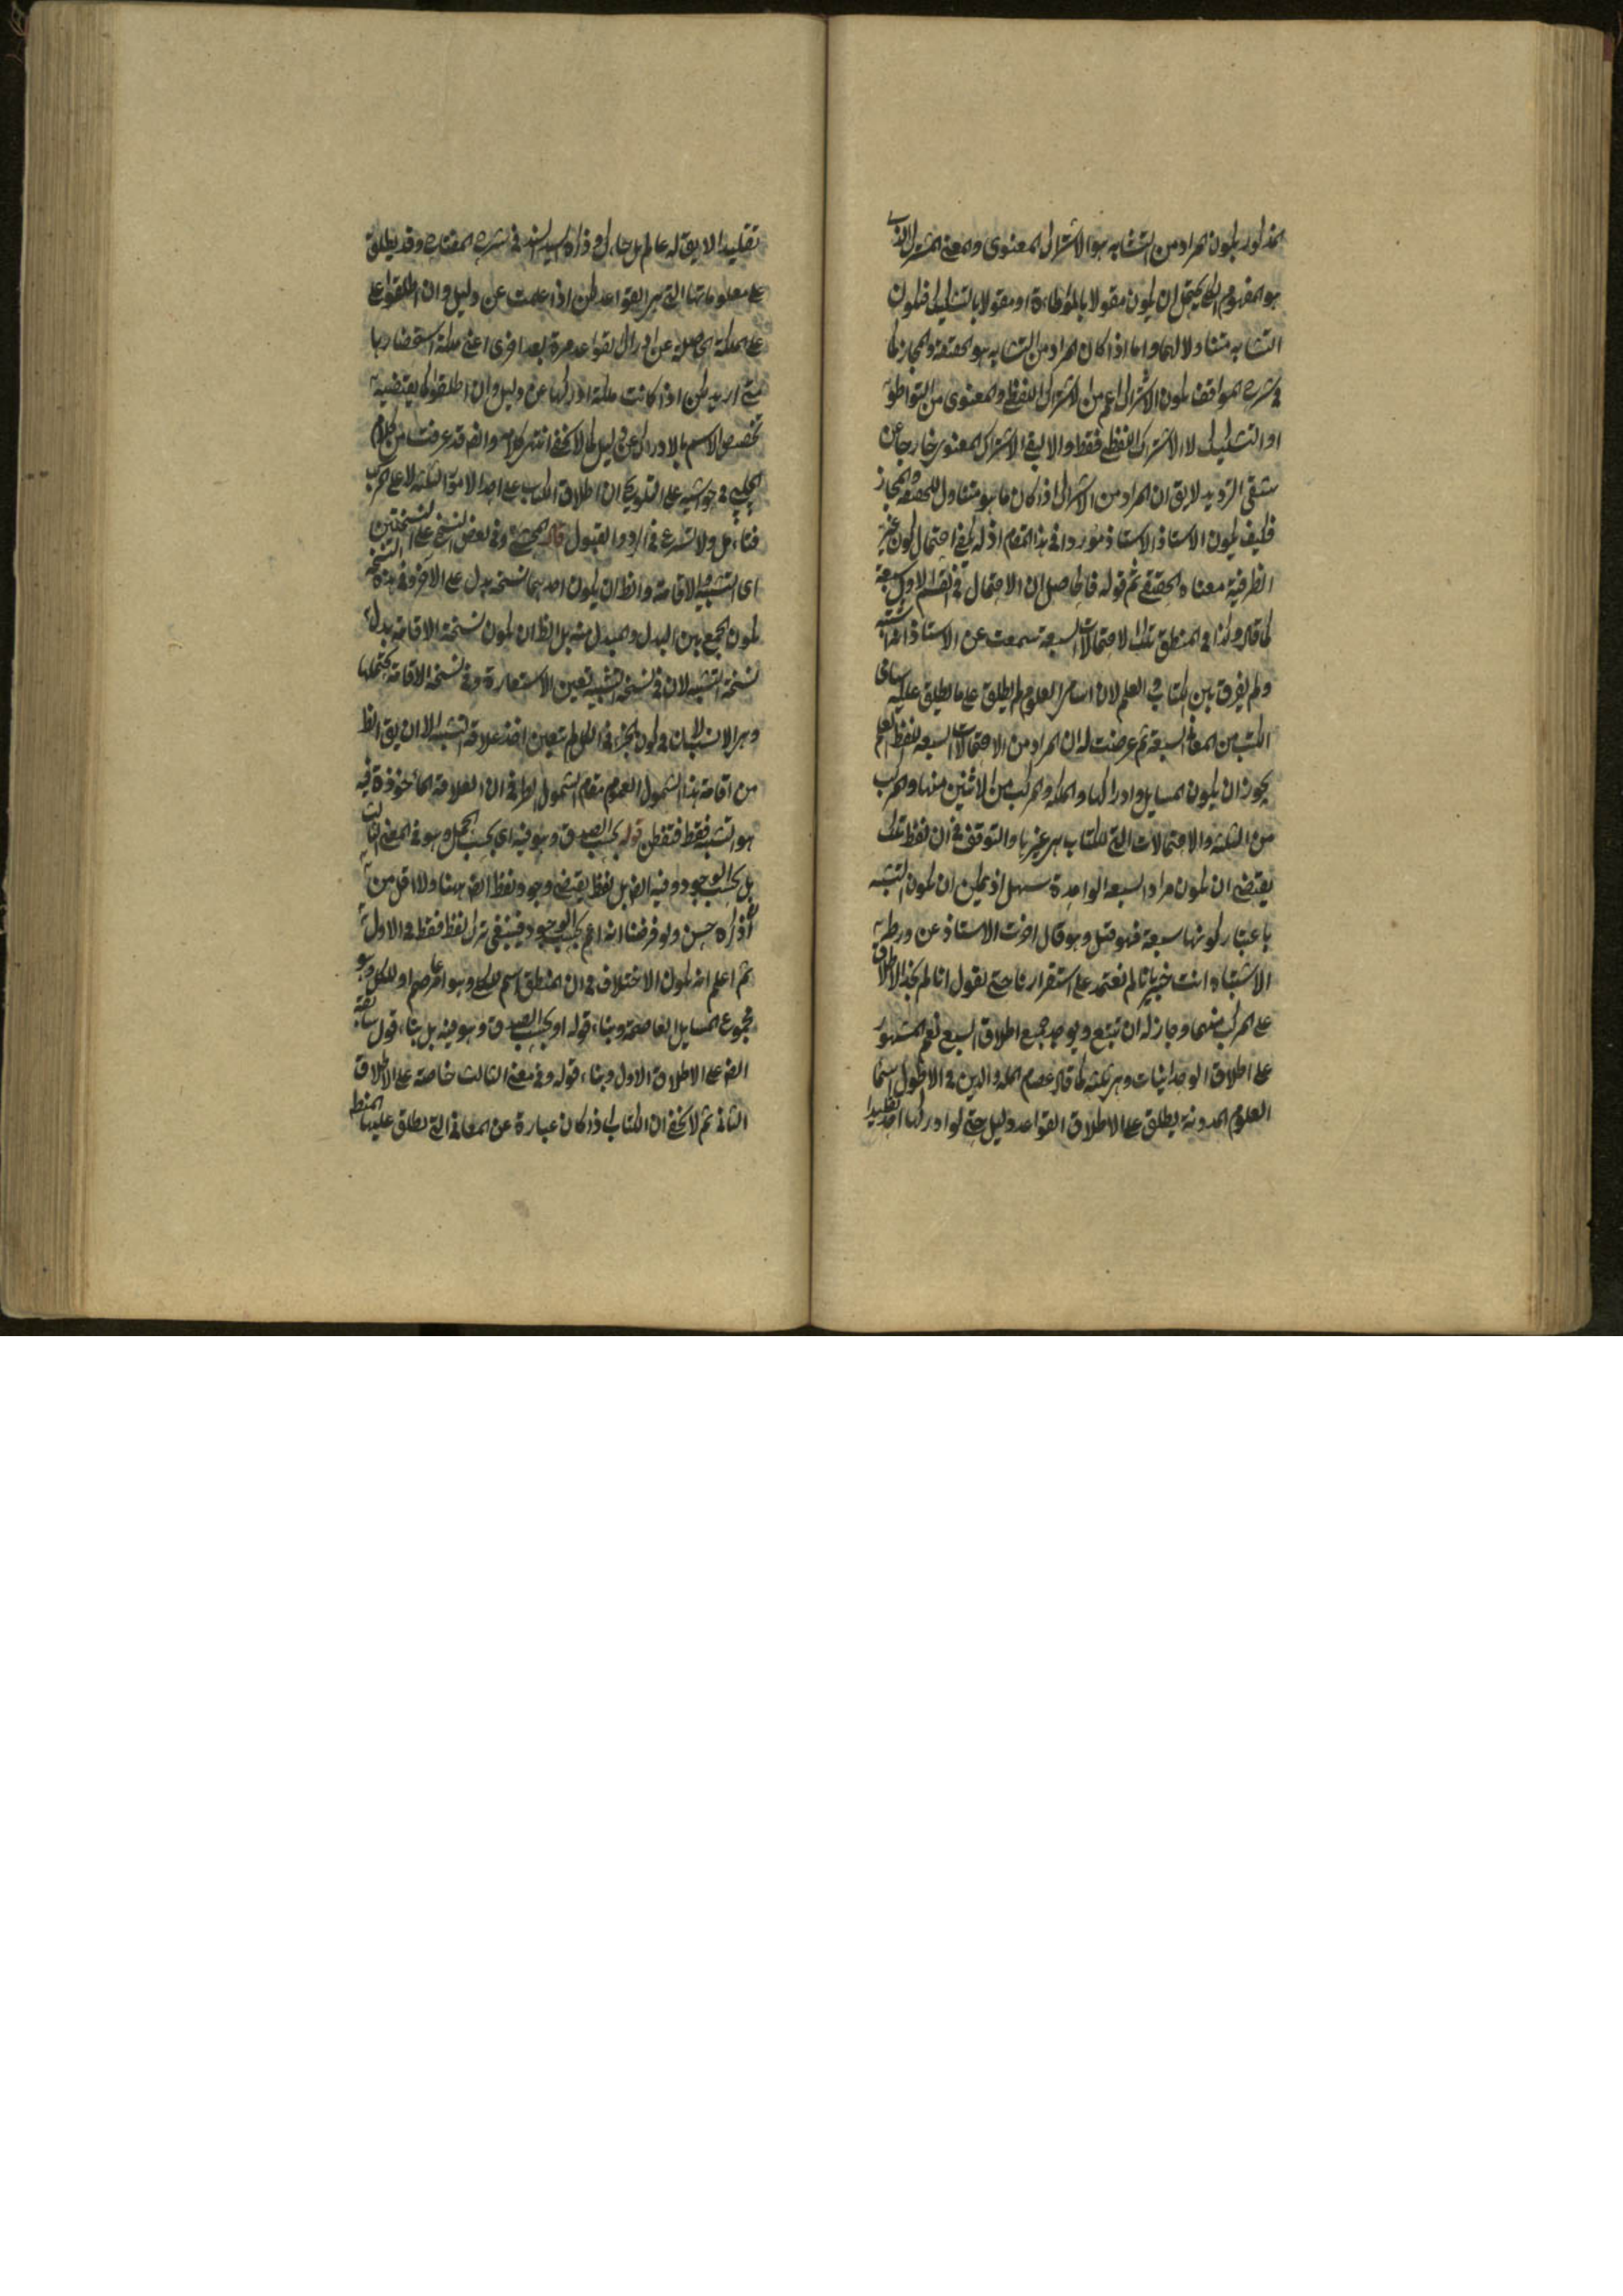 المذكور يكون المراد من التشابه هو الاشتراك المعنوي والمعنى المشترك الذي
هو المفهوم الكلي يحتمل ان يكون مقولا بالمواطاءة او مقولا بالتشكيك فيكون
التشابه متناولا لهما واما اذا كان المراد من التشابه هو الحقيقة والمجاز كما
في شرح المواقف يكون الاشتراك اعم من الاشتراك اللفظي والمعنوي من التواطؤ
او التشكيك لا الاشتراك اللفظي فقط والا لبقي الاشتراك المعنوي خارجا عن
شقي الترديد لا يق ان المراد من الاشتراك اذا كان ما هو متناول للحقيقة والمجاز
فكيف يكون الاستاذ الاستاذ موردا في هذا المقام اذ له يكفي احتمال كون غير
الظرفية معناه الحقيقي ثم قوله فالحاصل ان الاحتمال في القسم الاول سبعة
كما قال وكذا في المنطق تلك الاحتمالات السبعة سمعت عن الاستاذ انه اشتبه
ولم يفرق بين الكتاب والعلم لان اسامي العلوم لم يطلق على ما يطلق عليه اسامي
الكتب من المعاني السبعة ثم عرضت له ان المراد من الاحتمالات السبعة للفظ العلم
يجوز ان يكون المسايل وادراكها والملكة والمركب من الاثنين منها والمركب
من الثلثة والاحتمالات التي للكتاب هي غيرها والتوقف في ان لفظ تلك
يقتضي ان يكون مراد السبعة الواحدة سهل اذ يمكن ان يكون التشبه
باعتبار كونها سبعة فهو قبل وهو قال اخرت الاستاذ عن ورطة
الاشتباه انت خبير بانا لم نعتمد على استقرارنا حتى نقول انا لم نجد الاطلاق
على المركب منهما وجاز له ان تتبع ويوجد جميع اطلاق السبع نعم المشهور
على اطلاق الوحدانيات وهي ثلثة كما قال عصام الملة والدين في الاطول اسما
العلوم المدونة يطلق على الاطلاق القواعد دليل حتى لو ادركها احد تقليدا
تقليدا لا يق له عالم بل حاك وذكره السيد السند في شرح المفتاح وقد يطلق
على معلوماتها التي هي القواعد لكن اذا علمت عن دليل وان اطلقوا على
على الملكة الحاصلة عن ادراك القواعد مرة بعد اخرى اعني ملكة استحضارها
متى اريد لكن اذا كانت ملكة ادراكها عن دليل وان اطلقوا كما يقتضيه
تخصيص الاسم بالادراك عن دليل كما لا يخفى انتهى كلامه وايض قد عرفت من كلام
الچلبي في حواشيه على التلويح ان اطلاق الكتاب على احد الامور الثلثة لا على المركب
فتامل ولا تسرع في الرد والقبول قال المحشي وفي بعض النسخ على النسختين
اى التشبيه والاقامة والظ ان يكون احديهما نسخة بدل على الاخر وفي هذه النسخة
يكون الجمع بين البدل والمبدل منه بل الظ ان يكون نسخة الاقامة بدل
نسخة التشبيه لان في نسخة التشبيه تعين الاستعارة وفي نسخة الاقامة يحتملها
وهي الانسب لان في كون الجزء في الكل لم يتعين اخذ علاقة التشبيه الا ان يق الظ
من اقامة هذا الشمول العموم مقام الشمول الظرفي ان العلاقة الماخوذة فيه
هو التشبه فقط فتفطن قوله بحسب الصدق وهو فيه اى بحسب الحمل وهو في المعنى الثالث
بل بحسب الوجود وفيه ايض بل لفظ يقتضي وجود لفظ ايض ههنا ولا اقل من
ذكره حسن ولو فرضنا انه اعم بحسب الوجود فينبغي ترك لفظ فقط في الاول
ثم اعلم انه يكون الاختلاف في ان المنطق اسم للكلي وهو عاصم او للكل وهو
مجموع المسايل العاصمة وبناء قوله او بحسب الصدق وهو فيه بل بناء قول سابقه
ايض على الاطلاق الاول وبناء قوله وفي معنى الثالث خاصة على الاطلاق
الثاني ثم لا يخفى ان الكتاب اذا كان عبارة عن المعاني التي يطلق عليها المنطق